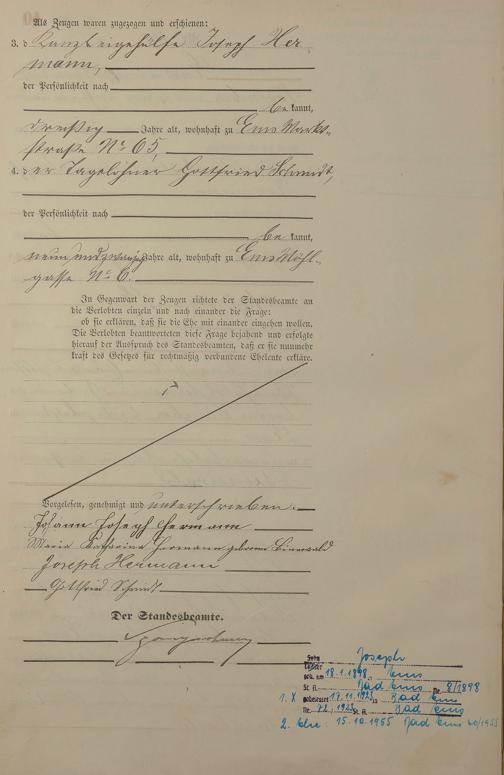 Als Zeugen waren zugezogen und erschienen:
3. d Kanzleigehülfe Joseph Her-
mann,
der Persönlichkeit nach
be kannt,
dreißig Jahre alt, wohnhaft zu Ems Markt-
straße No 65,
4. der Tagelöhner Gottfried Schmidt,
der Persönlichkeit nach
be kannt,
neunundzwanzig Jahre alt, wohnhaft zu Ems
gasse No 6.
In Gegenwart der Zeugen richtete der Standesbeamte an
die Verlobten einzeln und nach einander die Frage:
ob sie erklären, daß sie die Ehe mit einander eingehen wollen.
Die Verlobten beantworteten diese Frage bejahend und erfolgte
hierauf der Ausspruch des Standesbeamten, daß er sie nunmehr
kraft des Gesetzes für rechtmäßig verbundene Eheleute erkläre.
Vorgelesen, genehmigt und unterschrieben.
Johann Joseph Hermann
Maria Katharina Hermann geborene
Joseph Hermann
Gottfried Schmidt
Der Standesbeamte.
Sohn Joseph
geb. am 18.1.1898, Ems
St. A. Bad Ems Nr. 8/1898
1. X geheiratet 17.11.1923 in Bad Ems
Nr. 72/1923 St. A. Bad Ems
2. Ehe: 15.10.1955 Bad Ems /1955